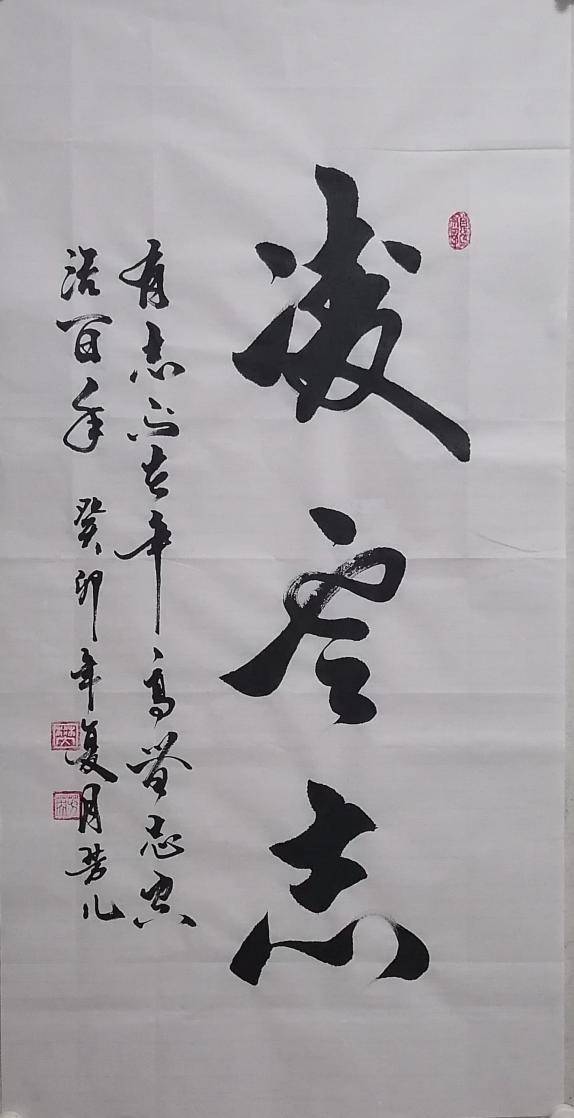 凌雲志
有志不在年高無志空
活百年 癸卯年夏月芳儿